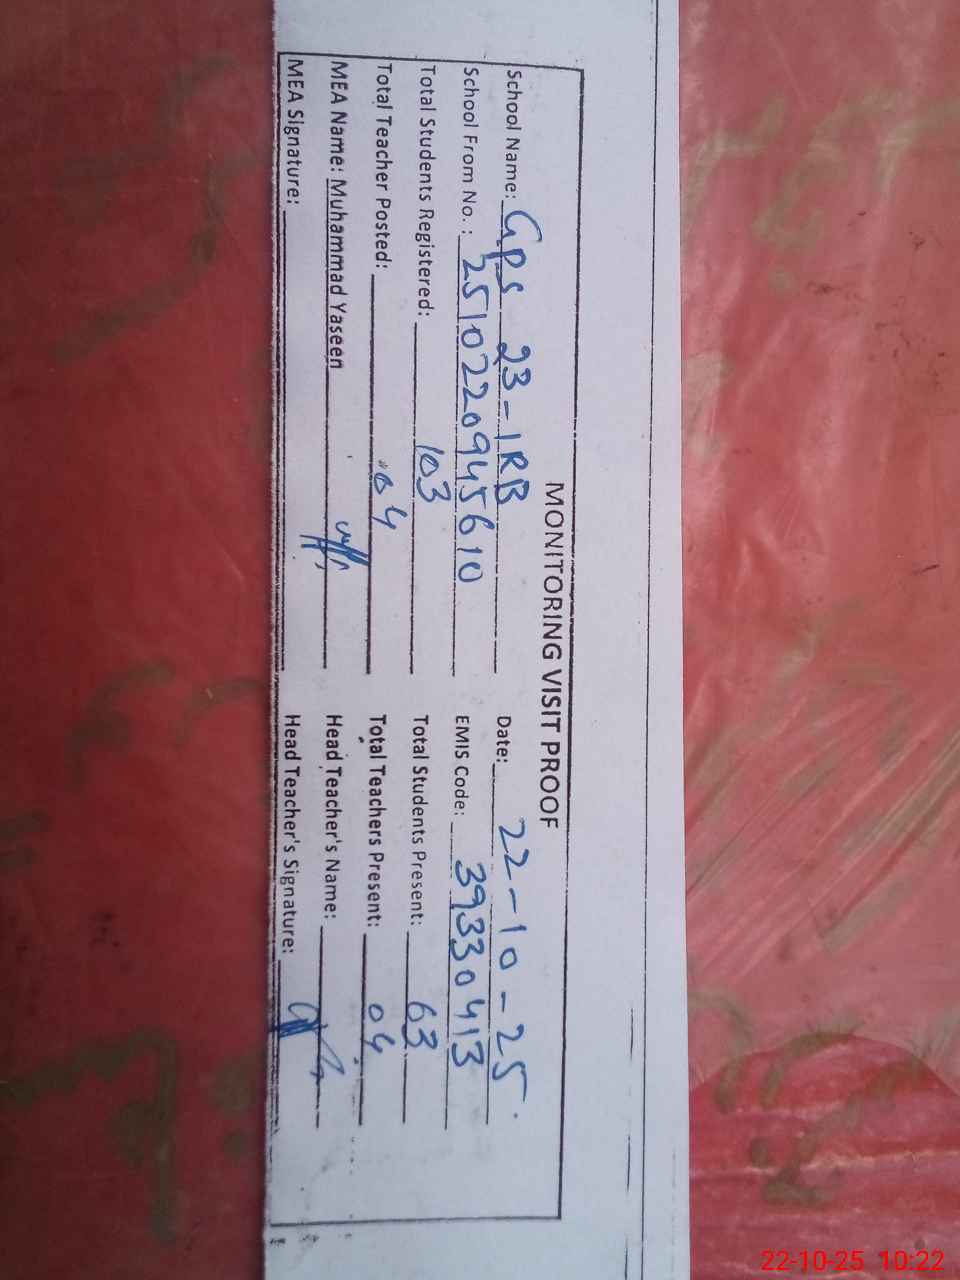 MONITORING VISIT PROOF
School Name: GPS 23-1RB Date: 22-10-25
School From No. : 2510220945610 EMIS Code: 39330413
Total Students Registered: 103 Total Students Present: 63
Total Teacher Posted: 04 Total Teachers Present: 04
MEA Name: Muhammad Yaseen Head Teacher's Name:
MEA Signature: Head Teacher's Signature:
22-10-25 10:22